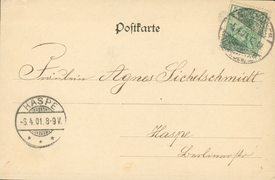 Postkarte
Fräulein Agnes Sichelschmidt
HASPE
-5.4.01.8-9V.
Haspe
Berlinerstr